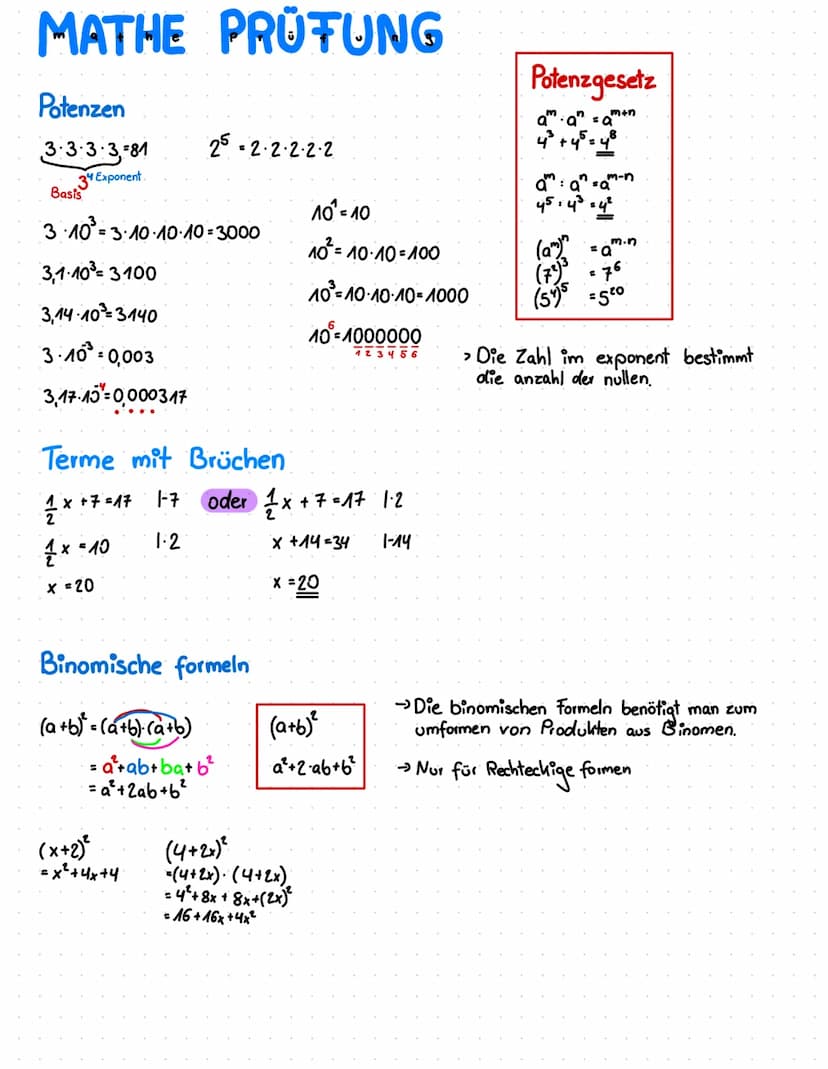 MATHE PRÜFUNG
Potenzen
3·3·3·3=81
3⁴ Exponent
Basis
2⁵ = 2·2·2·2·2
3·10³=3·10·10·10=3000
3,1·10³=3100
3,14·10³=3140
3·10⁻³=0,003
3,17·10⁻⁴=0,000317
10¹=10
10²=10·10=100
10³=10·10·10=1000
10⁶=1000000
1 2 3 4 5 6
Potenzgesetz
aᵐ·aⁿ=aᵐ⁺ⁿ
4³+4⁵=4⁸
aᵐ:aⁿ=aᵐ⁻ⁿ
4⁵:4³=4²
(aᵐ)ⁿ =aᵐ·ⁿ
(7²)³ =7⁶
(5⁴)⁵ =5²⁰
> Die Zahl im exponent bestimmt
die anzahl der nullen.
Terme mit Brüchen
1/2 x +7=17 |-7 oder 1/2 x + 7=17 |·2
1/2 x =10 |·2 x +14=34 |-14
x =20 x =20
Binomische formeln
(a+b)²=(a+b)·(a+b)
=a²+ab+ba+b²
=a²+2ab+b²
(a+b)²
a²+2·ab+b²
→ Die binomischen Formeln benötigt man zum
umformen von Produkten aus Binomen.
→ Nur für Rechteckige formen
(x+2)²
=x²+4x+4
(4+2x)²
=(4+2x)·(4+2x)
=4²+8x+8x+(2x)²
=16+16x+4x²